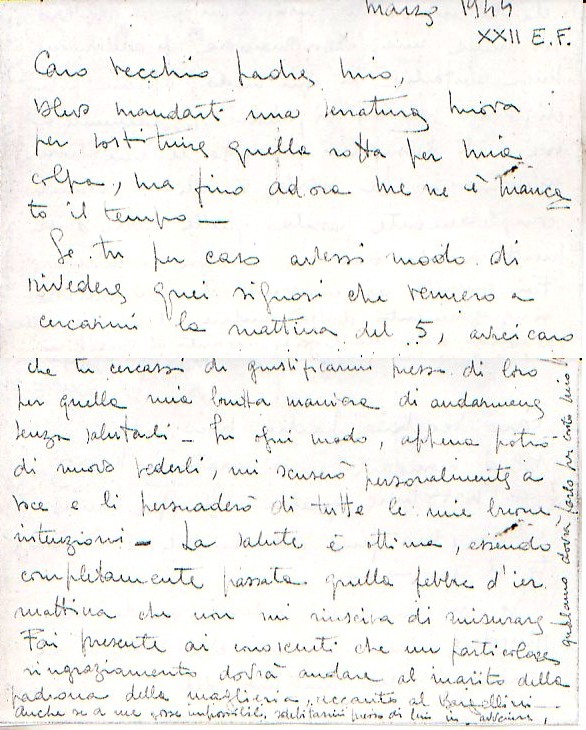 marzo 1944
XXII E.F.
Caro vecchio padre mio,
volevo mandarti una serratura nuova
per sostituire quella rotta per mia
colpa, ma fino adora me ne è manca
to il tempo —
Se tu per caso avessi modo di
rivedere quei signori che vennero a
cercarmi la mattina del 5, avrei caro
che tu cercassi di giustificarmi presso di loro
per quella mia brutta maniera di andarmene
senza salutarli — In ogni modo, appena potrò
di nuovo vederli, mi scuserò personalmente a
voce e li persuaderò di tutte le mie buone
intenzioni — La salute è ottima, essendo
completamente passata quella febbre d'ieri
mattina che non mi riusciva di misurare
Fai presente ai conoscenti che un particolare
ringraziamento dovrà andare al marito della
padrona della maglieria, accanto al Bandini —
Anche se a me fosse impossibile, presso di lui in
qualcuno dovrà farlo per conto mio!